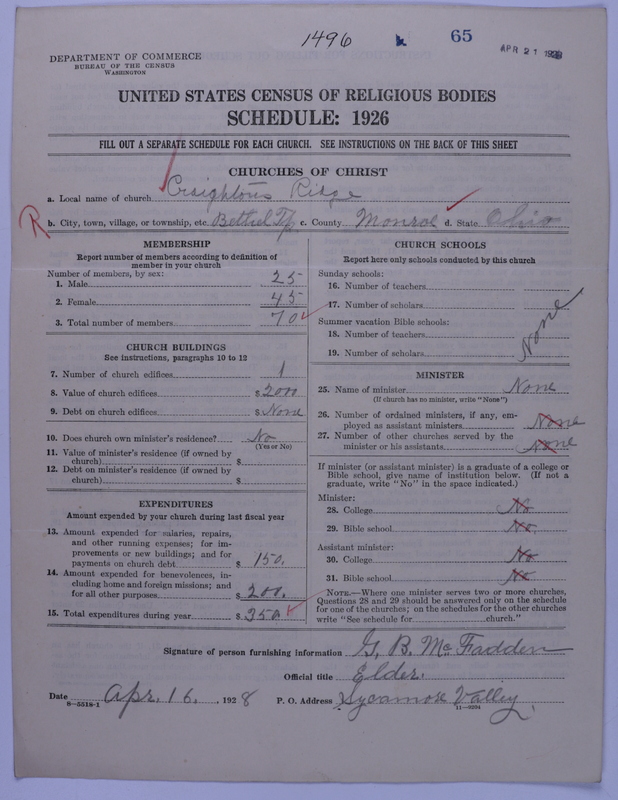 1496 65 APR 21 1928
DEPARTMENT OF COMMERCE
BUREAU OF THE CENSUS
WASHINGTON
UNITED STATES CENSUS OF RELIGIOUS BODIES
SCHEDULE: 1926
FILL OUT A SEPARATE SCHEDULE FOR EACH CHURCH. SEE INSTRUCTIONS ON THE BACK OF THIS SHEET
CHURCHES OF CHRIST
a. Local name of church Creightons Ridge
R b. City, town, village, or township, etc. Bethel Tp. c. County Monroe d. State Ohio
MEMBERSHIP
Report number of members according to definition of
member in your church
Number of members, by sex:
1. Male 25
2. Female 45
3. Total number of members 70
CHURCH BUILDINGS
See instructions, paragraphs 10 to 12
7. Number of church edifices 1
8. Value of church edifices $ 2000
9. Debt on church edifices $ None
10. Does church own minister's residence? No
(Yes or No)
11. Value of minister's residence (if owned by
church) $
12. Debt on minister's residence (if owned by
church) $
EXPENDITURES
Amount expended by your church during last fiscal year
13. Amount expended for salaries, repairs,
and other running expenses; for im-
provements or new buildings; and for
payments on church debt $ 150.
14. Amount expended for benevolences, in-
cluding home and foreign missions; and
for all other purposes $ 200.
15. Total expenditures during year $ 350
CHURCH SCHOOLS
Report here only schools conducted by this church
Sunday schools:
16. Number of teachers
17. Number of scholars
Summer vacation Bible schools:
18. Number of teachers
19. Number of scholars
None
MINISTER
25. Name of minister None
(If church has no minister, write "None")
26. Number of ordained ministers, if any, em-
ployed as assistant ministers None
27. Number of other churches served by the
minister or his assistants None
If minister (or assistant minister) is a graduate of a college or
Bible school, give name of institution below. (If not a
graduate, write "No" in the space indicated.)
Minister:
28. College No
29. Bible school No.
Assistant minister:
30. College No
31. Bible school No
NOTE.—Where one minister serves two or more churches,
Questions 28 and 29 should be answered only on the schedule
for one of the churches; on the schedules for the other churches
write "See schedule for church."
Signature of person furnishing information G. B. McFadden
Official title Elder.
Date Apr. 16. , 1928 P. O. Address Sycamore Valley.
8—5518-1 11—9394